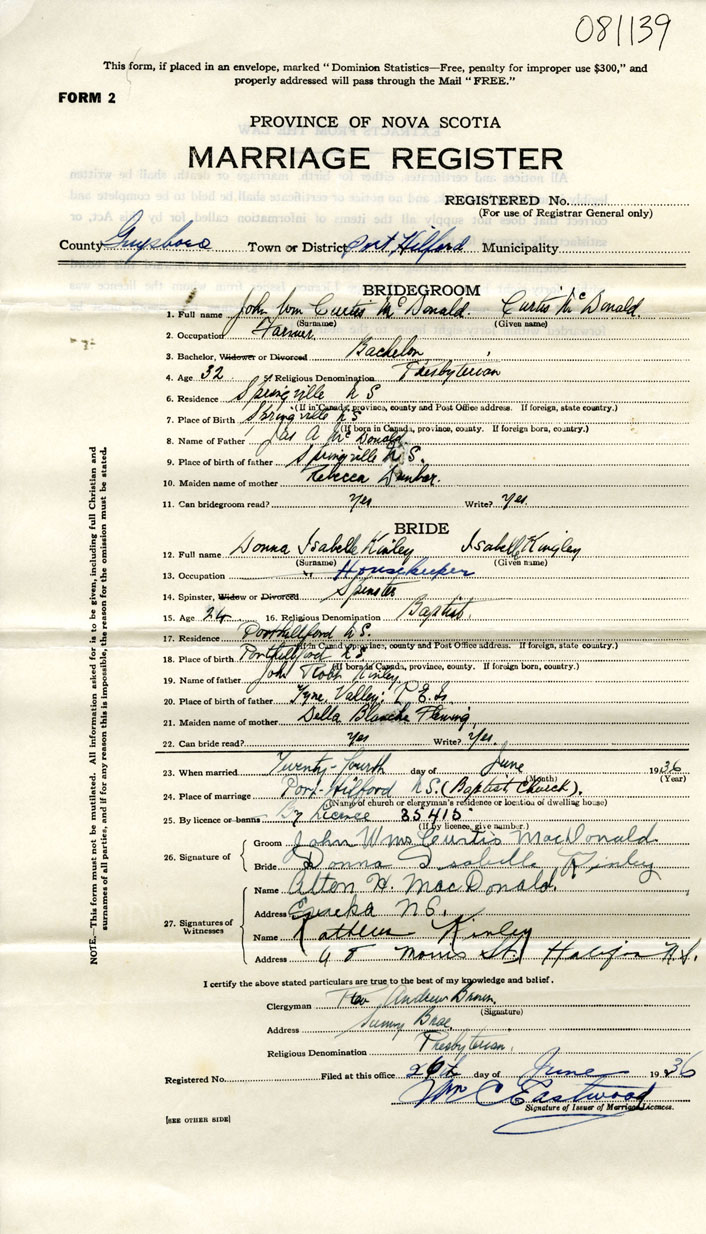 081139
This form, if placed in an envelope, marked "Dominion Statistics—Free, penalty for improper use $300," and
properly addressed will pass through the Mail "FREE."
FORM 2
PROVINCE OF NOVA SCOTIA
MARRIAGE REGISTER
REGISTERED No.
(For use of Registrar General only)
County Guysboro Town or District Port Hilford Municipality
BRIDEGROOM
1. Full name John Wm Curtis McDonald. Curtis McDonald
(Surname) (Given name)
2. Occupation Farmer.
3. Bachelor, Widower or Divorced Bachelor
4. Age 32 5. Religious Denomination Presbyterian
6. Residence Springville N S
(If in Canada, province, county and Post Office address. If foreign, state country.)
7. Place of Birth Springville N S
(If born in Canada, province, county. If foreign born, country.)
8. Name of Father Jas A McDonald
9. Place of birth of father Springville N. S.
10. Maiden name of mother Rebecca Dunbar.
11. Can bridegroom read? Yes Write? Yes.
BRIDE
12. Full name Donna Isabelle Kinley Isabelle Kinley
(Surname) (Given name)
13. Occupation Housekeeper
14. Spinster, Widow or Divorced Spinster
15. Age 24 16. Religious Denomination Baptist.
17. Residence Porthilford N S.
(If in Canada, province, county and Post Office address. If foreign, state country.)
18. Place of birth Porthilford N S
(If born in Canada, province, county. If foreign born, country.)
19. Name of father John Robt Kinley
20. Place of birth of father Tyne Valley, P. E. Is
21. Maiden name of mother Della Blanche Fleming
22. Can bride read? Yes Write? Yes.
23. When married Twenty-Fourth day of June 1936
(Month) (Year)
24. Place of marriage Port-Hilford N S. (Baptist Church).
(Name of church or clergyman's residence or location of dwelling house)
25. By licence or banns By Licence 85415
(If by licence, give number.)
26. Signature of Groom John Wms Curtis MacDonald
Bride Donna Isabelle Kinley
27. Signatures of Witnesses
Name Alton H. MacDonald.
Address Eureka N S.
Name Kathleen Kinley
Address 48 Morris St. Halifax N.S.
NOTE.—This form must not be mutilated. All information asked for is to be given, including full Christian and
surnames of all parties, and if for any reason this is impossible, the reason for the omission must be stated.
I certify the above stated particulars are true to the best of my knowledge and belief.
Clergyman Rev Andrew Brown.
(Signature)
Address Sunny Brae.
Religious Denomination Presbyterian.
Registered No. Filed at this office 26th day of June 1936
Wm C Eastwood
Signature of Issuer of Marriage Licences.
[SEE OTHER SIDE]